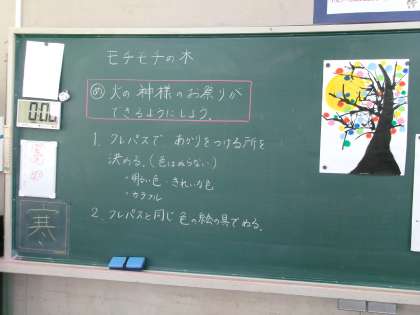 モチモチの木
め 火の神様のお祭りが
できるようにしよう。
1. クレパスで あかりをつける所を
決める。(色はぬらない)
・明るい色 ・きれいな色
・カラフル
2. クレパスと同じ色の絵の具でぬる。